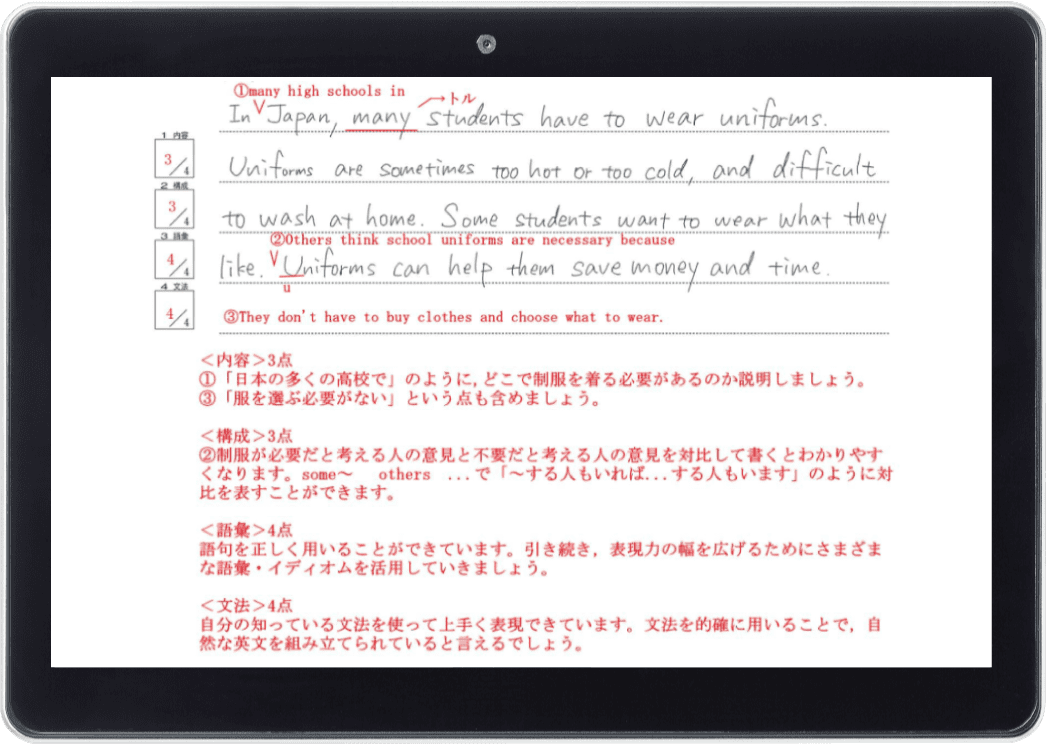 ①many high schools in
In ∨ Japan, many students have to wear uniforms.
→トル
1 内容
3/4
Uniforms are sometimes too hot or too cold, and difficult
2 構成
3/4
to wash at home. Some students want to wear what they
②Others think school uniforms are necessary because
3 語彙
4/4
like. ∨ Uniforms can help them save money and time.
u
4 文法
4/4
③They don't have to buy clothes and choose what to wear.
<内容>3点
①「日本の多くの高校で」のように,どこで制服を着る必要があるのか説明しましょう。
③「服を選ぶ必要がない」という点も含めましょう。
<構成>3点
②制服が必要だと考える人の意見と不要だと考える人の意見を対比して書くとわかりやす
くなります。some~ others ...で「~する人もいれば...する人もいます」のように対
比を表すことができます。
<語彙>4点
語句を正しく用いることができています。引き続き,表現力の幅を広げるためにさまざま
な語彙・イディオムを活用していきましょう。
<文法>4点
自分の知っている文法を使って上手く表現できています。文法を的確に用いることで,自
然な英文を組み立てられていると言えるでしょう。